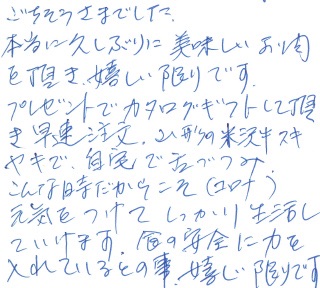 ごちそうさまでした.
本当に久しぶりに美味しいお肉
を頂き、嬉しい限りです.
プレゼントでカタログギフトして頂
き早速注文. 山形の米沢牛スキ
ヤキで、自宅で舌づつみ.
こんな時だからこそ(コロナ)
元気をつけてしっかり生活し
ていけます. 食の安全に力を
入れているとの事、嬉しい限りです